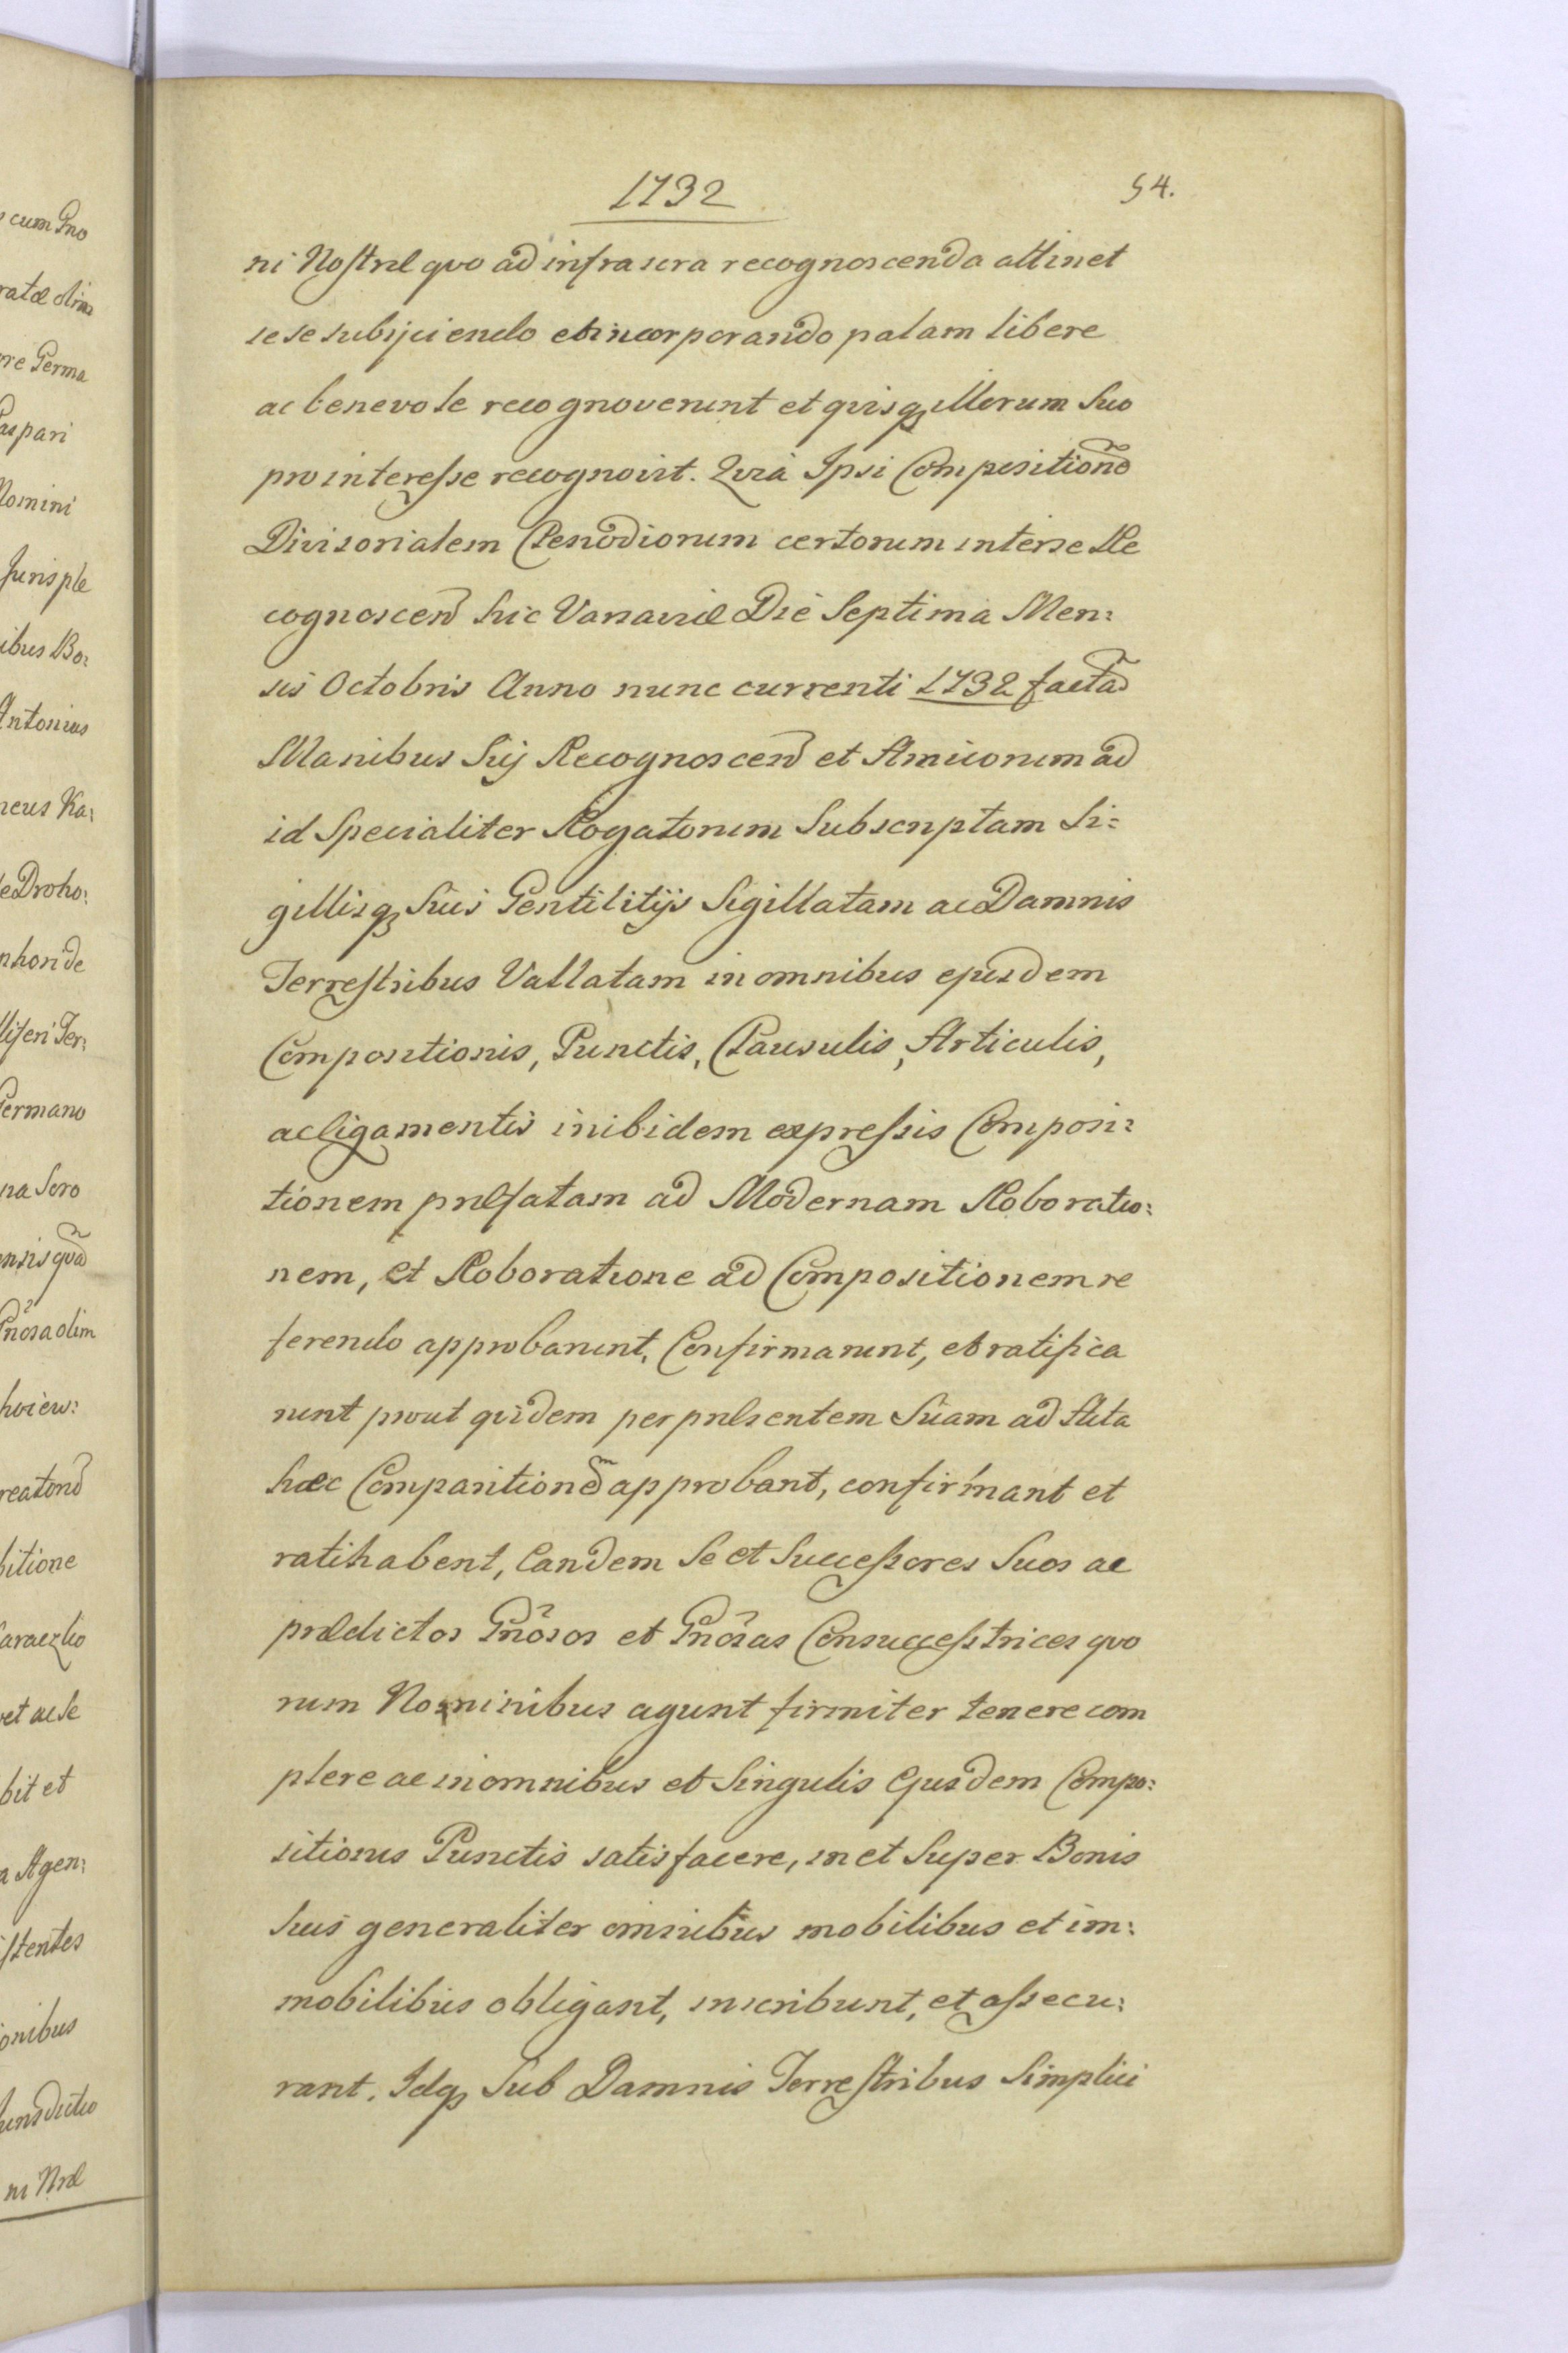 1732
54.
ni Nostræ quo ad infrascra recognoscenda attinet
sese subijciendo et incorporando palam libere
ac benevole recognoverunt et quisqȝ illorum Suo
pro interesse recognovit. Quià Ipsi Compositionẽ
Divisorialem Prædiorum certorum interse Re
cognoscen̄ hic Varsaviæ Die Septima Men:
sis Octobris Anno nunc currenti 1732 factã
Manibus Suis Recognoscen̄ et Amicorum ad
id Specialiter Rogatorum Subscriptam Si=
gillisqȝ Suis Gentilitijs Sigillatam ac Damnis
Terrestribus Vallatam in omnibus ejusdem
Compositionis, Punctis, Clausulis, Articulis,
ac ligamentis inibidem expressis Composi:
tionem præfatam ad Modernam Roboratio:
nem, et Roboratione ad Compositionem re
ferendo approbarunt, Confirmarunt, et ratifica
runt prout quidem per præsentem Suam ad Acta
hæc Comparitionẽ approbant, confirmant et
ratihabent, Eandem Se et Successores Suos ac
prædictos Gñosos et Gñosas Consuccestrices quo
rum Nominibus agunt firmiter tenere com
plere ac in omnibus et Singulis Ejusdem Compo:
sitionis Punctis satisfacere, in et Super Bonis
Suis generaliter omnibus mobilibus et im:
mobilibus obligant, inscribunt, et assecu:
rant. Idqȝ Sub Damnis Terrestribus Simplici
cum Gno
ratæ olim
Germa
aspari
Nomini
Juris ple
ibus Bo:
Antonius
Ka:
de Droho:
Ter:
Germano
na Soro
Gñosa olim
bitione
et ac Se
bit et
a Agen:
stentes
onibus
Jurisdictio
ni Nræ